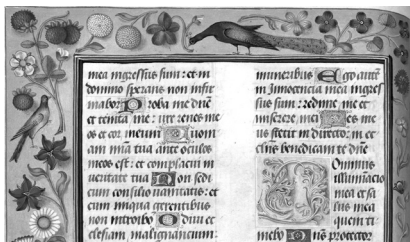 mea ingressus sum: et in
domino sperans non infir
mabor Proba me dñe
et tempta me: ure renes me
os et cor meum Quoni
am mia tua ante oculos
meos est: et complacui in
veritate tua Non sedi
cum consilio vanitatis: et
cum iniqua gerentibus
non introibo Odiui ec
clesiam malignancium:
muneribus Ego autē
in Innocencia mea ingres
sus sum: redime me et
miserere mei Pes me
us stetit in directo: in ec
clesiis benedicam te dñe
Dominus
illuminacio
mea et sa
lus mea
quem ti
mebo Dñs protector